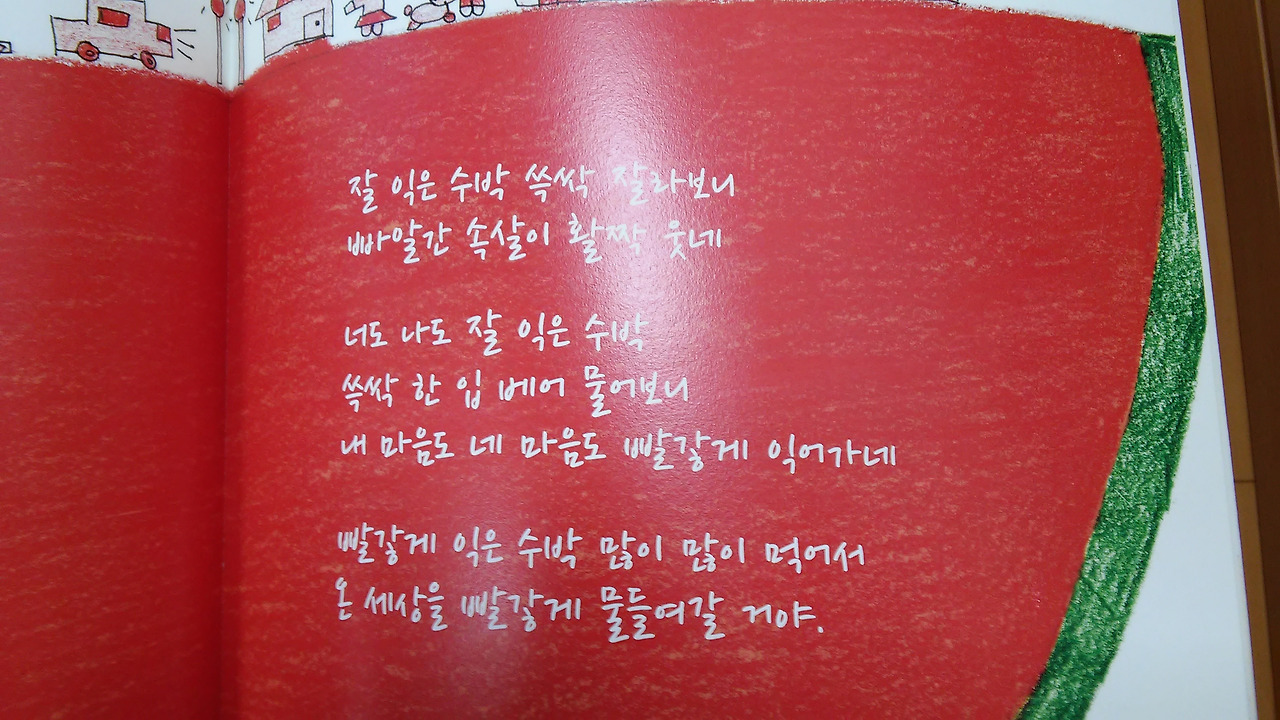 잘 익은 수박 쓱싹 잘라보니
빠알간 속살이 활짝 웃네
너도 나도 잘 익은 수박
쓱싹 한 입 베어 물어보니
내 마음도 네 마음도 빨갛게 익어가네
빨갛게 익은 수박 많이 많이 먹어서
온 세상을 빨갛게 물들여갈 거야.